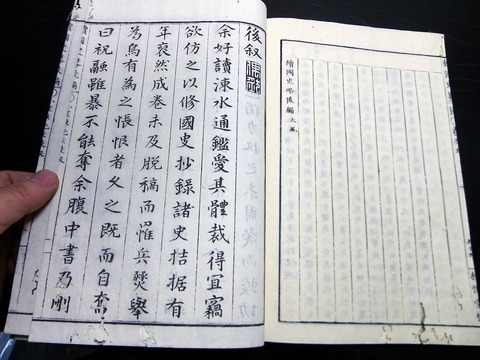 續國史略後編大尾
後叙
余好讀涑水通鑑愛其體裁得宜竊
欲仿之以修國史抄錄諸史拮据有
年裒然成卷未及脱稿而罹兵燹擧
為烏有為之悵恨者久之既而自奮
曰祝融雖暴不能奪余腹中書乃刪